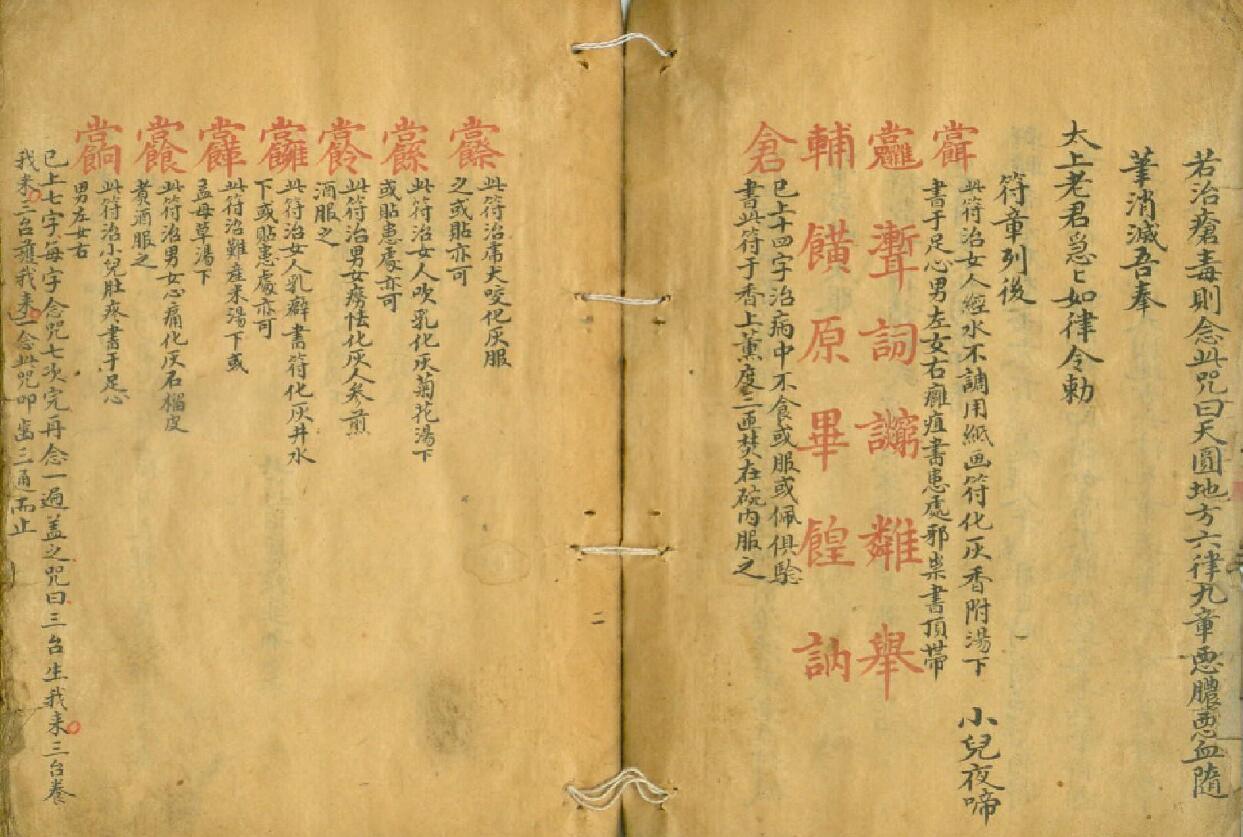 若治瘡毒則念此咒曰天圓地方六律九章惡膿惡血隨
筆消滅吾奉
太上老君急〻如律令勅
符章列後
此符治女人經水不調用紙画符化灰香附湯下
小兒夜啼
書于足心男左女右癰疽書患處邪祟書頂帶
詞 舉
輔 原 畢 餭 訥
倉
已上十四字治病中不食或服或佩俱驗
書此符于香上薰度三匝焚在碗内服之
此符治馬犬咬化灰服
之或貼亦可
此符治女人吹乳化灰菊花湯下
或貼患處亦可
此符治男女癆怯化灰人參煎
酒服之
此符治女人乳癖書符化灰井水
下或貼患處亦可
此符治難産未湯下或
孟母草湯下
此符治男女心痛化灰石榴皮
煑酒服之
此符治小兒肚疼書于足心
男左女右
已上七字每字念咒七次完再念一遍盖之咒曰三台生我来三台養
我来三台護我来一念此咒叩齒三通而止
二